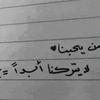 من يحبنا ♥
لا يتركنا أبداً =)